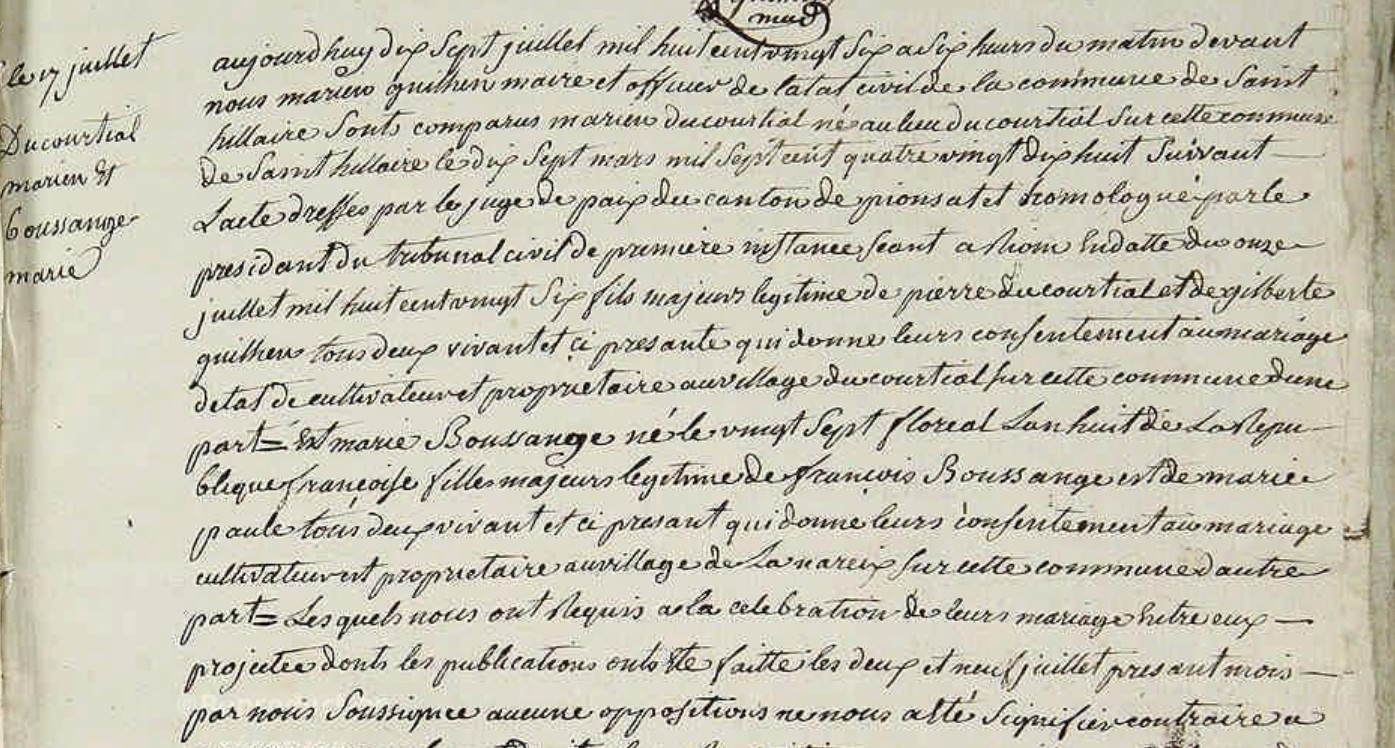 le 17 juillet
Ducourtial
marien Et
Boussange
marie
aujourdhuy dix Sept juillet mil huit cent vingt Six a Six heurs du matin devant
nous marien guilhen maire et officier de latat civil de la commune de Saint
hillaire Sonts comparus marien ducourtial né au lieu du courtial Sur cette commune
de Saint hillaire le dix Sept mars mil Sept cent quatre vingt dix huit Suivant
Lacte dresses par le juge de paix du canton de pionsat et homologué par le
presidant du tribunal civil de premiere instance seant a Riom En datte du onze
juillet mil huit cent vingt Six fils majeurs legitime de pierre ducourtial et de gilberte
guilhen tous deux vivant et ci presante qui donne leurs consentement au mariage
detat de cultivateur et proprietaire au village du courtial sur cette commune dune
part = Et marie Boussange né le vingt Sept floreal Lan huit de La Repu
blique françoise fille majeurs legitime de françois Boussange et de marie
paule tous deux vivant et ci presant qui donne leurs consentement au mariage
cultivateur et proprietaire au village de La nareix sur cette commune dautre
part = Lesquels nous ont Requis a la celebration de leurs mariage Entre eux
projettee donts les publications onts Ete faitte les deux et neuf juillet presant mois
par nous Soussignee aucune oppositions ne nous a Eté Signifier contraire a